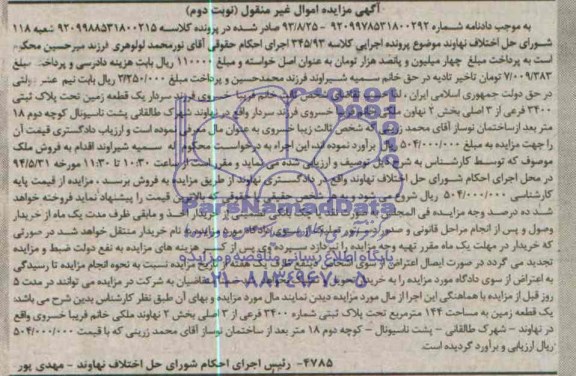 آگهی مزایده اموال غیر منقول (نوبت دوم)
به موجب دادنامه شماره ۹۲۰۹۹۷۸۵۳۱۸۰۰۲۹۲ - ۹۳/۸/۲۵ صادر شده در پرونده کلاسه ۹۲۰۹۹۸۸۵۳۱۸۰۰۲۱۵ شعبه ۱۱۸
شورای حل اختلاف نهاوند موضوع پرونده اجرایی کلاسه ۳۴۵/۹۳ اجرای احکام حقوقی آقای نورمحمد لولوهری فرزند میرحسین محکوم
است به پرداخت مبلغ چهار میلیون و پانصد هزار تومان به عنوان اصل خواسته و مبلغ ۱۱۰۰۰۰ ریال بابت هزینه دادرسی و پرداخت مبلغ
۷/۰۰۹/۳۸۳ تومان تاخیر تادیه در حق خانم سمیه شیراوند فرزند محمدحسین و پرداخت مبلغ ۲/۲۵۰/۰۰۰ ریال بابت نیم عشر دولتی
در حق دولت جمهوری اسلامی ایران، شخص ثالث خانم فریبا خسروی فرزند سردار یک قطعه زمین تحت پلاک ثبتی
۳۴۰۰ فرعی از ۳ اصلی بخش ۲ نهاوند خسروی فرزند سردار واقع در نهاوند شهرک طالقانی پشت ناسیونال کوچه دوم ۱۸
متر بعد ازساختمان نوساز آقای محمد زرینی که شخص ثالث زیبا خسروی به عنوان مال معرفی نموده است و ارزیاب دادگستری قیمت آن
را جهت مزایده به مبلغ ۵۰۴/۰۰۰/۰۰۰ ریال برآورد نموده اند، این اجراء به درخواست محکوم له سمیه شیراوند اقدام به فروش ملک
موصوف که توسط کارشناس به شرح ذیل توصیف و ارزیابی شده می نماید و مقرر است از ساعت ۱۰:۳۰ تا ۱۱:۳۰ مورخه ۹۴/۵/۳۱
در محل اجرای احکام شورای حل اختلاف نهاوند واقع در دادگستری نهاوند از طریق مزایده به فروش برسد، مزایده از قیمت پایه
کارشناسی ۵۰۴/۰۰۰/۰۰۰ ریال شروع می شود و به شخص حقیقی یا حقوقی که بالاترین قیمت را پیشنهاد نماید فروخته خواهد
شد ده درصد وجه مزایده فی المجلس اخذ و مابقی ظرف مدت یک ماه از خریدار
وصول و پس از انجام مراحل قانونی و صدور دستور از سوی دادگاه مورد مزایده به نام خریدار منتقل خواهد شد در صورتی
که خریدار در مهلت یک ماه مقرر بقیه وجه مزایده را نپردازد سپرده وی پس از کسر هزینه های مزایده به نفع دولت ضبط و مزایده
تجدید می گردد در صورت ایصال اعتراض از سوی ظرف یک هفته از تاریخ مزایده نسبت به نحوه انجام مزایده تا رسیدگی
به اعتراض از سوی دادگاه مورد مزایده به خریدار تحویل متقاضیان به شرکت در مزایده می توانند در مدت ۵
روز قبل از مزایده با هماهنگی این اجرا از مال مورد مزایده دیدن نمایند مال مورد مزایده و بهای آن طبق نظر کارشناس بدین شرح می باشد:
یک قطعه زمین به مساحت ۱۴۴ مترمربع تحت پلاک ثبتی شماره ۳۴۰۰ فرعی از ۳ اصلی بخش ۲ نهاوند ملکی خانم فریبا خسروی واقع
در نهاوند - شهرک طالقانی - پشت ناسیونال - کوچه دوم ۱۸ متر بعد از ساختمان نوساز آقای محمد زرینی که با قیمت ۵۰۴/۰۰۰/۰۰۰
ریال ارزیابی و برآورد گردیده است.
۴۷۸۵- رئیس اجرای احکام شورای حل اختلاف نهاوند - مهدی پور
ParsNamadData
پایگاه اطلاع رسانی مناقصه و مزایده
۰۲۱-۸۸۳۴۹۶۷۰-۵